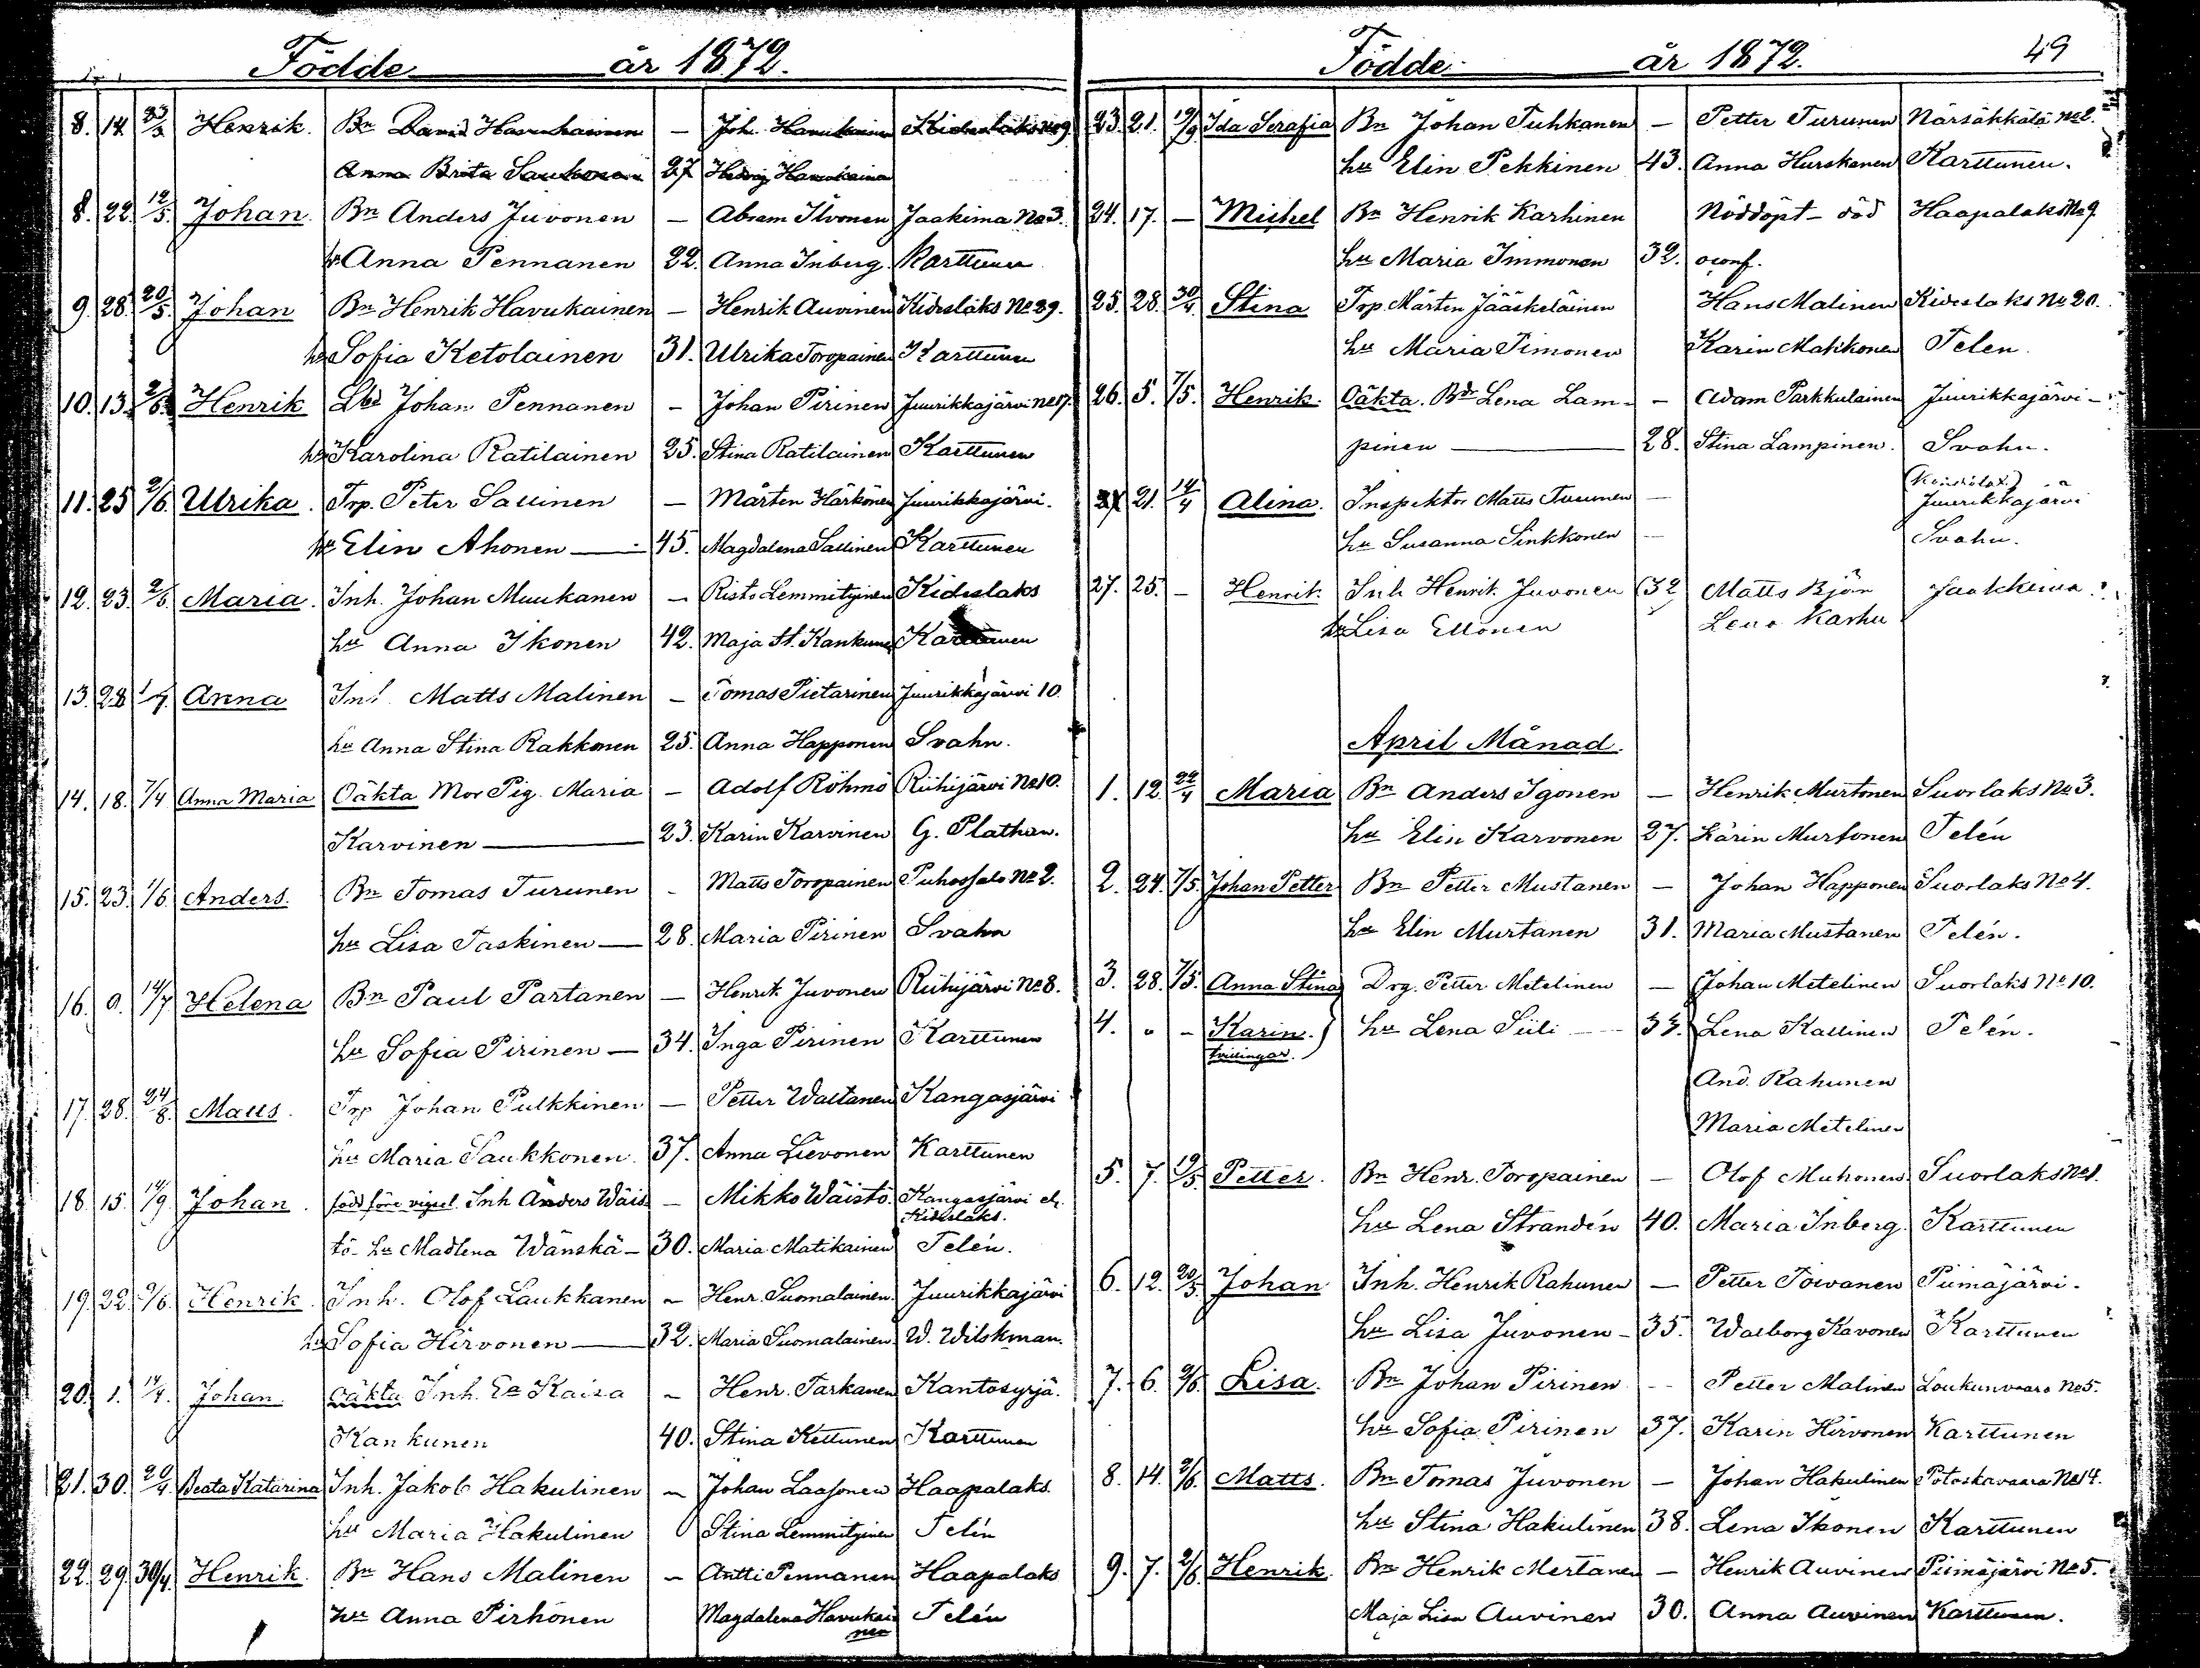 Födde år 1872.
8. 14. 23/3 Henrik. Bn David Havukainen - Joh. Havukainen Kideslaks No 9
Anna Brita Saukonen 27 Hedvig Havukainen
8. 22. 12/5. Johan. Bn Anders Juvonen - Abram Ilvonen Jaakima No 3.
hu Anna Pennanen 22. Anna Inberg Karttunen
9. 28. 20/5. Johan Bn Henrik Havukainen - Henrik Auvinen Kideslaks No 29.
hu Sofia Ketolainen 31. Ulrika Toropainen Karttunen
10. 13. 2/6. Henrik Lbd Johan Pennanen - Johan Pirinen Juurikkajärvi No 17.
hu Karolina Ratilainen 25. Stina Ratilainen Karttunen
11. 25 2/6. Ulrika. Trp. Peter Sallinen - Mårten Härkönen Juurikkajärvi.
hu Elin Ahonen 45. Magdalena Sallinen Karttunen
12. 23. 2/6. Maria. Inh. Johan Muukanen - Risto Lemmityinen Kideslaks
hu Anna Ikonen 42. Maja St. Kankunen Karttunen
13. 28 1/7. Anna Inh. Matts Malinen - Tomas Pietarinen Juurikkajärvi 10.
hu Anna Stina Rakkonen 25. Anna Happonen Svahn.
14. 18. 7/4 Anna Maria Oäkta Mor Pig. Maria - Adolf Röhmö Riihijärvi No 10.
Karvinen 23. Karin Karvinen G. Plathan.
15. 23. 1/6. Anders. Bn Tomas Turunen - Matts Toropainen Puhossalo No 2.
hu Lisa Taskinen 28. Maria Pirinen Svahn
16. 9. 14/7 Helena Bn Paul Partanen - Henrik Juvonen Riihijärvi No 8.
hu Sofia Pirinen 34. Inga Pirinen Karttunen
17. 28. 24/8. Matts. Trp Johan Pulkkinen - Petter Waltanen Kangasjärvi
hu Maria Saukkonen. 37. Anna Lievonen Karttunen
18. 15. 14/9. Johan. född före vigsel. Inh Anders Wäis - Mikko Wäistö. Kangasjärvi el.
Kideslaks.
tö - hu Madlena Wänskä - 30. Maria Matikainen Telén.
19. 22. 2/6. Henrik. Inh. Olof Laukkanen - Henr. Suomalainen Juurikkajärvi
hu Sofia Hirvonen 32. Maria Suomalainen W. Wilskman.
20. 1. 14/4. Johan. Oäkta Inh. Ea Kaisa - Henr. Tarkanen Kantosyrjä.
Kankunen 40. Stina Kettunen Karttunen
21. 30. 20/4. Beata Katarina Inh. Jakob Hakulinen - Johan Laasonen Haapalaks.
hu Maria Hakulinen Stina Lemmityinen Telén
22. 29. 30/4. Henrik. Bn Hans Malinen - Antti Pennanen Haapalaks
hu Anna Pirhonen Magdalena Havukai Telén
nen
Födde år 1872. 49
23. 21. 19/9. Ida Serafia Bn Johan Tuhkanen - Petter Turunen Närsäkkälä No 2.
hu Elin Pekkinen 43. Anna Hurskanen Karttunen.
24. 17. - Mickel Bn Henrik Karhinen Nöddöpt - död Haapalaks No 9
hu Maria Immonen 32. oconf.
25. 28. 30/4. Stina Trp Mårten Jääskeläinen Hans Malinen Kideslaks No 20.
hu Maria Timonen Karin Makkonen Telen.
26. 5. 7/5. Henrik. Oäkta. Bdr Lena Lam- - Adam Parkkulainen Juurikkajärvi -
pinen 28. Stina Lampinen. Svahn.
27 21. 14/4 Alina. Inspektor Matts Tuunen - Juurikkajärvi
hu Susanna Sinkkonen - Svahn.
27. 25. - Henrik Inh Henrik Juvonen 32 Matts Björn Jaakkima
hu Lisa Ellonen Lena Karhu
April Månad.
1. 12. 22/4 Maria Bn Anders Igonen - Henrik Murtonen Suorlaks No 3.
hu Elin Karvonen 27. Karin Murtonen Telén
2. 24. 7/5. Johan Petter Bn Petter Mustanen - Johan Happonen Suorlaks No 4.
hu Elin Murtanen 31. Maria Mustanen Telén.
3. 28. 7/5. Anna Stina Drg. Petter Metelinen - Johan Metelinen Suorlaks No 10.
4. " - Karin. hu Lena Siili 33. Lena Kallinen Telén.
tvillingar.
And. Rahunen
Maria Metelinen
5. 7. 19/5. Petter. Bn Henr. Toropainen - Olof Muhonen Suorlaks No 1.
hu Lena Strandén 40. Maria Inberg. Karttunen
6. 12. 20/5. Johan Inh. Henrik Rahunen - Petter Toivanen Piimäjärvi.
hu Lisa Juvonen - 35. Walborg Kavonen Karttunen
7. 6. 2/6. Lisa. Bn Johan Pirinen - Petter Malinen Loukunvaara No 5.
hu Sofia Pirinen 37. Karin Hirvonen Karttunen
8. 14. 2/6. Matts. Bn Tomas Juvonen - Johan Hakulinen Potoskavaara No 14.
hu Stina Hakulinen 38. Lena Ikonen Karttunen
9. 7. 2/6. Henrik. Bn Henrik Mertanen - Henrik Auvinen Piimäjärvi No 5.
Maja Lisa Auvinen 30. Anna Auvinen Karttunen.